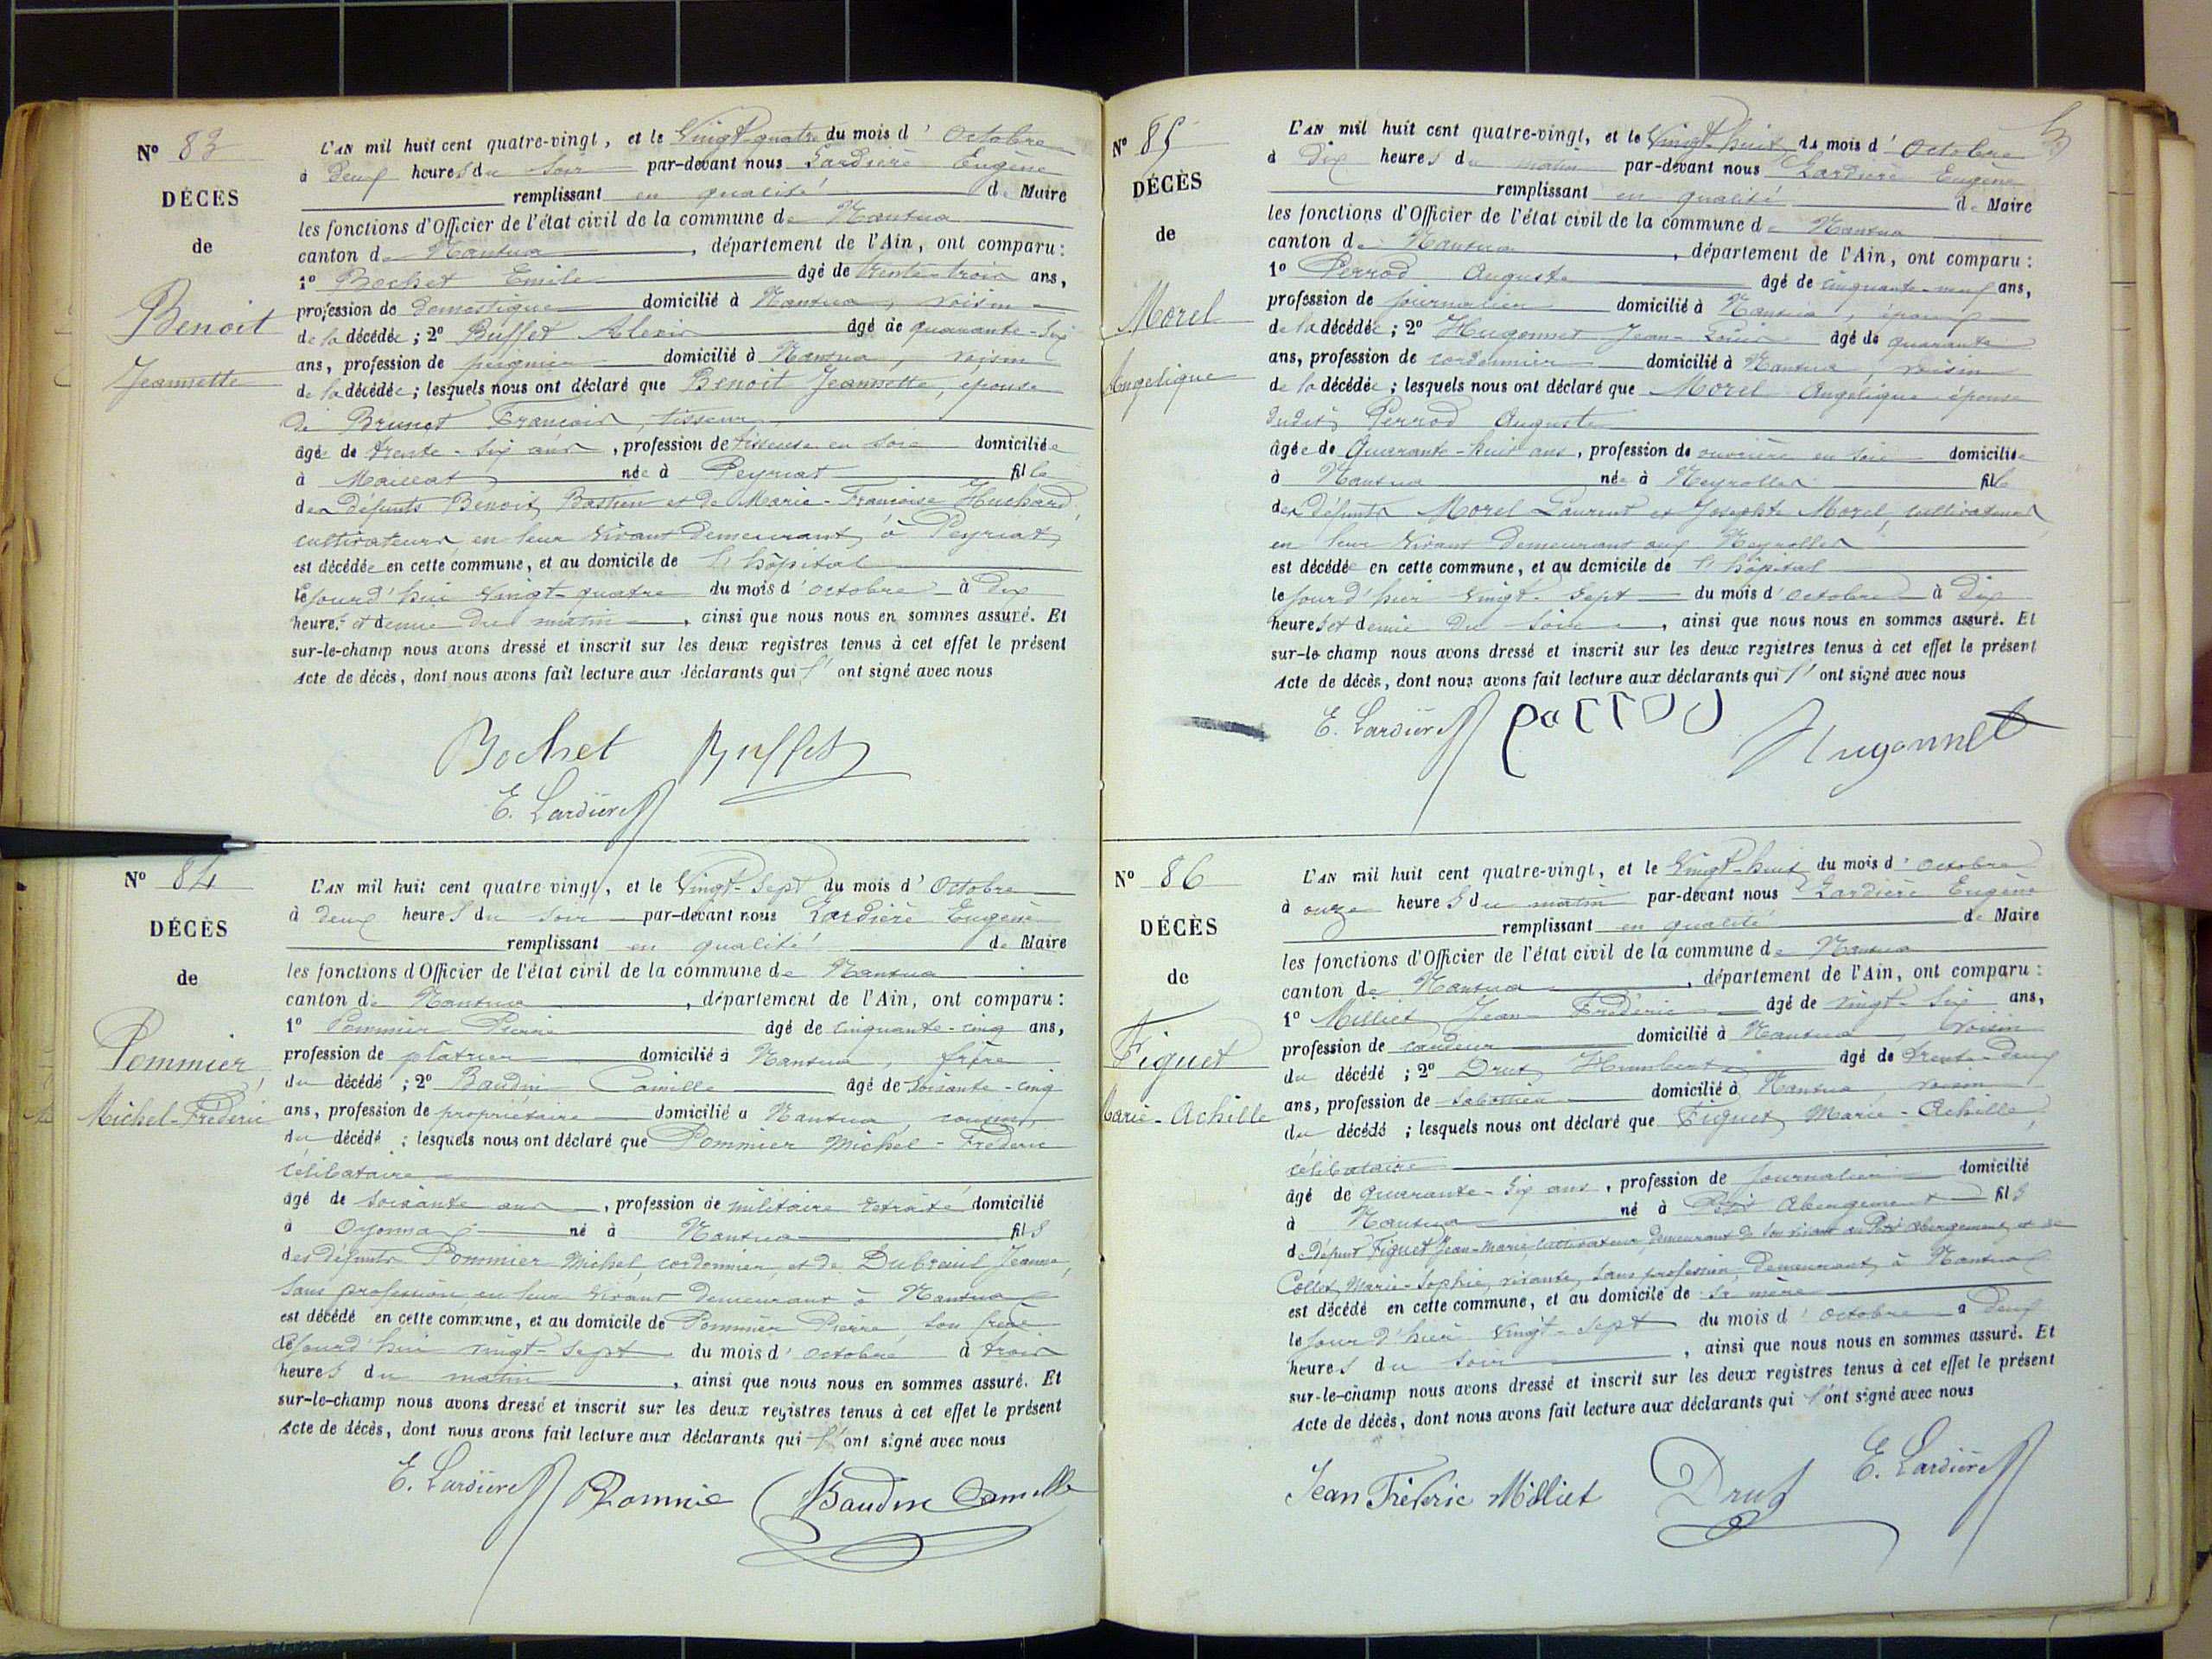 N° 83
DÉCÈS
de
Benoit
Jeannette
L'AN mil huit cent quatre-vingt, et le Vingt-quatre du mois d'Octobre
à Deux heures du soir par-devant nous Lardière Eugène
remplissant en qualité de Maire
les fonctions d'Officier de l'état civil de la commune de Nantua
canton de Nantua, département de l'Ain, ont comparu:
1° Bochet Emile âgé de trente-trois ans,
profession de domestique domicilié à Nantua, voisin
de la décédée; 2° Buffet Alexis âgé de quarante-six
ans, profession de peignier domicilié à Nantua, voisin
de la décédée; lesquels nous ont déclaré que Benoit Jeannette, épouse
de Brunet François, tisseur
âgée de trente-six ans, profession de tisseuse en soie domiciliée
à Maillat née à Peyriat fille
des défunts Benoit Bastien et de Marie-Françoise Huchard,
cultivateurs en leur vivant demeurant à Peyriat
est décédée en cette commune, et au domicile de l'hôpital
cejourd'hui vingt-quatre du mois d'octobre à dix
heures et demie du matin, ainsi que nous nous en sommes assuré. Et
sur-le-champ nous avons dressé et inscrit sur les deux registres tenus à cet effet le présent
Acte de décès, dont nous avons fait lecture aux déclarants qui l'ont signé avec nous
Bochet Buffet
E. Lardière
N° 84
DÉCÈS
de
Pommier
Michel-Frédéric
L'AN mil huit cent quatre-vingt, et le Vingt-sept du mois d'Octobre
à deux heures du soir par-devant nous Lardière Eugène
remplissant en qualité de Maire
les fonctions d'Officier de l'état civil de la commune de Nantua
canton de Nantua, département de l'Ain, ont comparu:
1° Pommier Pierre âgé de cinquante-cinq ans,
profession de plâtrier domicilié à Nantua, frère
du décédé; 2° Baudin Camille âgé de soixante-cinq
ans, profession de propriétaire domicilié à Nantua, cousin
du décédé; lesquels nous ont déclaré que Pommier Michel-Frédéric
célibataire
âgé de soixante ans, profession de militaire retraité domicilié
à Oyonnax né à Nantua fils
des défunts Pommier Michel, cordonnier, et de Dubreuil Jeanne,
sans profession en leur vivant demeurant à Nantua
est décédé en cette commune, et au domicile de Pommier Pierre, son frère
cejourd'hui vingt-sept du mois d'octobre à trois
heures du matin, ainsi que nous nous en sommes assuré. Et
sur-le-champ nous avons dressé et inscrit sur les deux registres tenus à cet effet le présent
Acte de décès, dont nous avons fait lecture aux déclarants qui l'ont signé avec nous
E. Lardière Pommie Baudin Camille
N° 85
DÉCÈS
de
Morel
Angélique
L'AN mil huit cent quatre-vingt, et le Vingt-huit du mois d'Octobre
à Dix heures du matin par-devant nous Lardière Eugène
remplissant en qualité de Maire
les fonctions d'Officier de l'état civil de la commune de Nantua
canton de Nantua, département de l'Ain, ont comparu:
1° Perrod Auguste âgé de cinquante-neuf ans,
profession de journalier domicilié à Nantua, époux
de la décédée; 2° Hugonnet Jean-Louis âgé de quarante
ans, profession de cordonnier domicilié à Nantua, voisin
de la décédée; lesquels nous ont déclaré que Morel Angélique épouse
dudit Perrod Auguste
âgée de Quarante-huit ans, profession de ouvrière en soie domiciliée
à Nantua née à Neyrolles fille
des défunts Morel Laurent et Josephte Morel, cultivateurs
en leur vivant demeurant aux Neyrolles
est décédée en cette commune, et au domicile de l'hôpital
le jour d'hier vingt-sept du mois d'octobre à dix
heures et demie du soir, ainsi que nous nous en sommes assuré. Et
sur-le-champ nous avons dressé et inscrit sur les deux registres tenus à cet effet le présent
Acte de décès, dont nous avons fait lecture aux déclarants qui l'ont signé avec nous
E. Lardière perrod Hugonnet
N° 86
DÉCÈS
de
Figuet
Marie-Achille
L'AN mil huit cent quatre-vingt, et le Vingt-huit du mois d'Octobre
à onze heures du matin par-devant nous Lardière Eugène
remplissant en qualité de Maire
les fonctions d'Officier de l'état civil de la commune de Nantua
canton de Nantua, département de l'Ain, ont comparu:
1° Milliet Jean Frédéric âgé de vingt-six ans,
profession de cardeur domicilié à Nantua, voisin
du décédé; 2° Drut Humbert âgé de trente-deux
ans, profession de sabottier domicilié à Nantua, voisin
du décédé; lesquels nous ont déclaré que Figuet Marie-Achille,
célibataire
âgé de quarante-six ans, profession de journalier domicilié
à Nantua né à Petit Abergement fils
de défunt Figuet Jean-Marie cultivateur, demeurant de son vivant au Petit Abergement et de
Collet Marie-Sophie, vivante, sans profession, demeurant à Nantua
est décédé en cette commune, et au domicile de sa mère
le jour d'hier vingt-sept du mois d'octobre à deux
heures du soir, ainsi que nous nous en sommes assuré. Et
sur-le-champ nous avons dressé et inscrit sur les deux registres tenus à cet effet le présent
Acte de décès, dont nous avons fait lecture aux déclarants qui l'ont signé avec nous
Jean Fréderic Milliet Drut E. Lardière